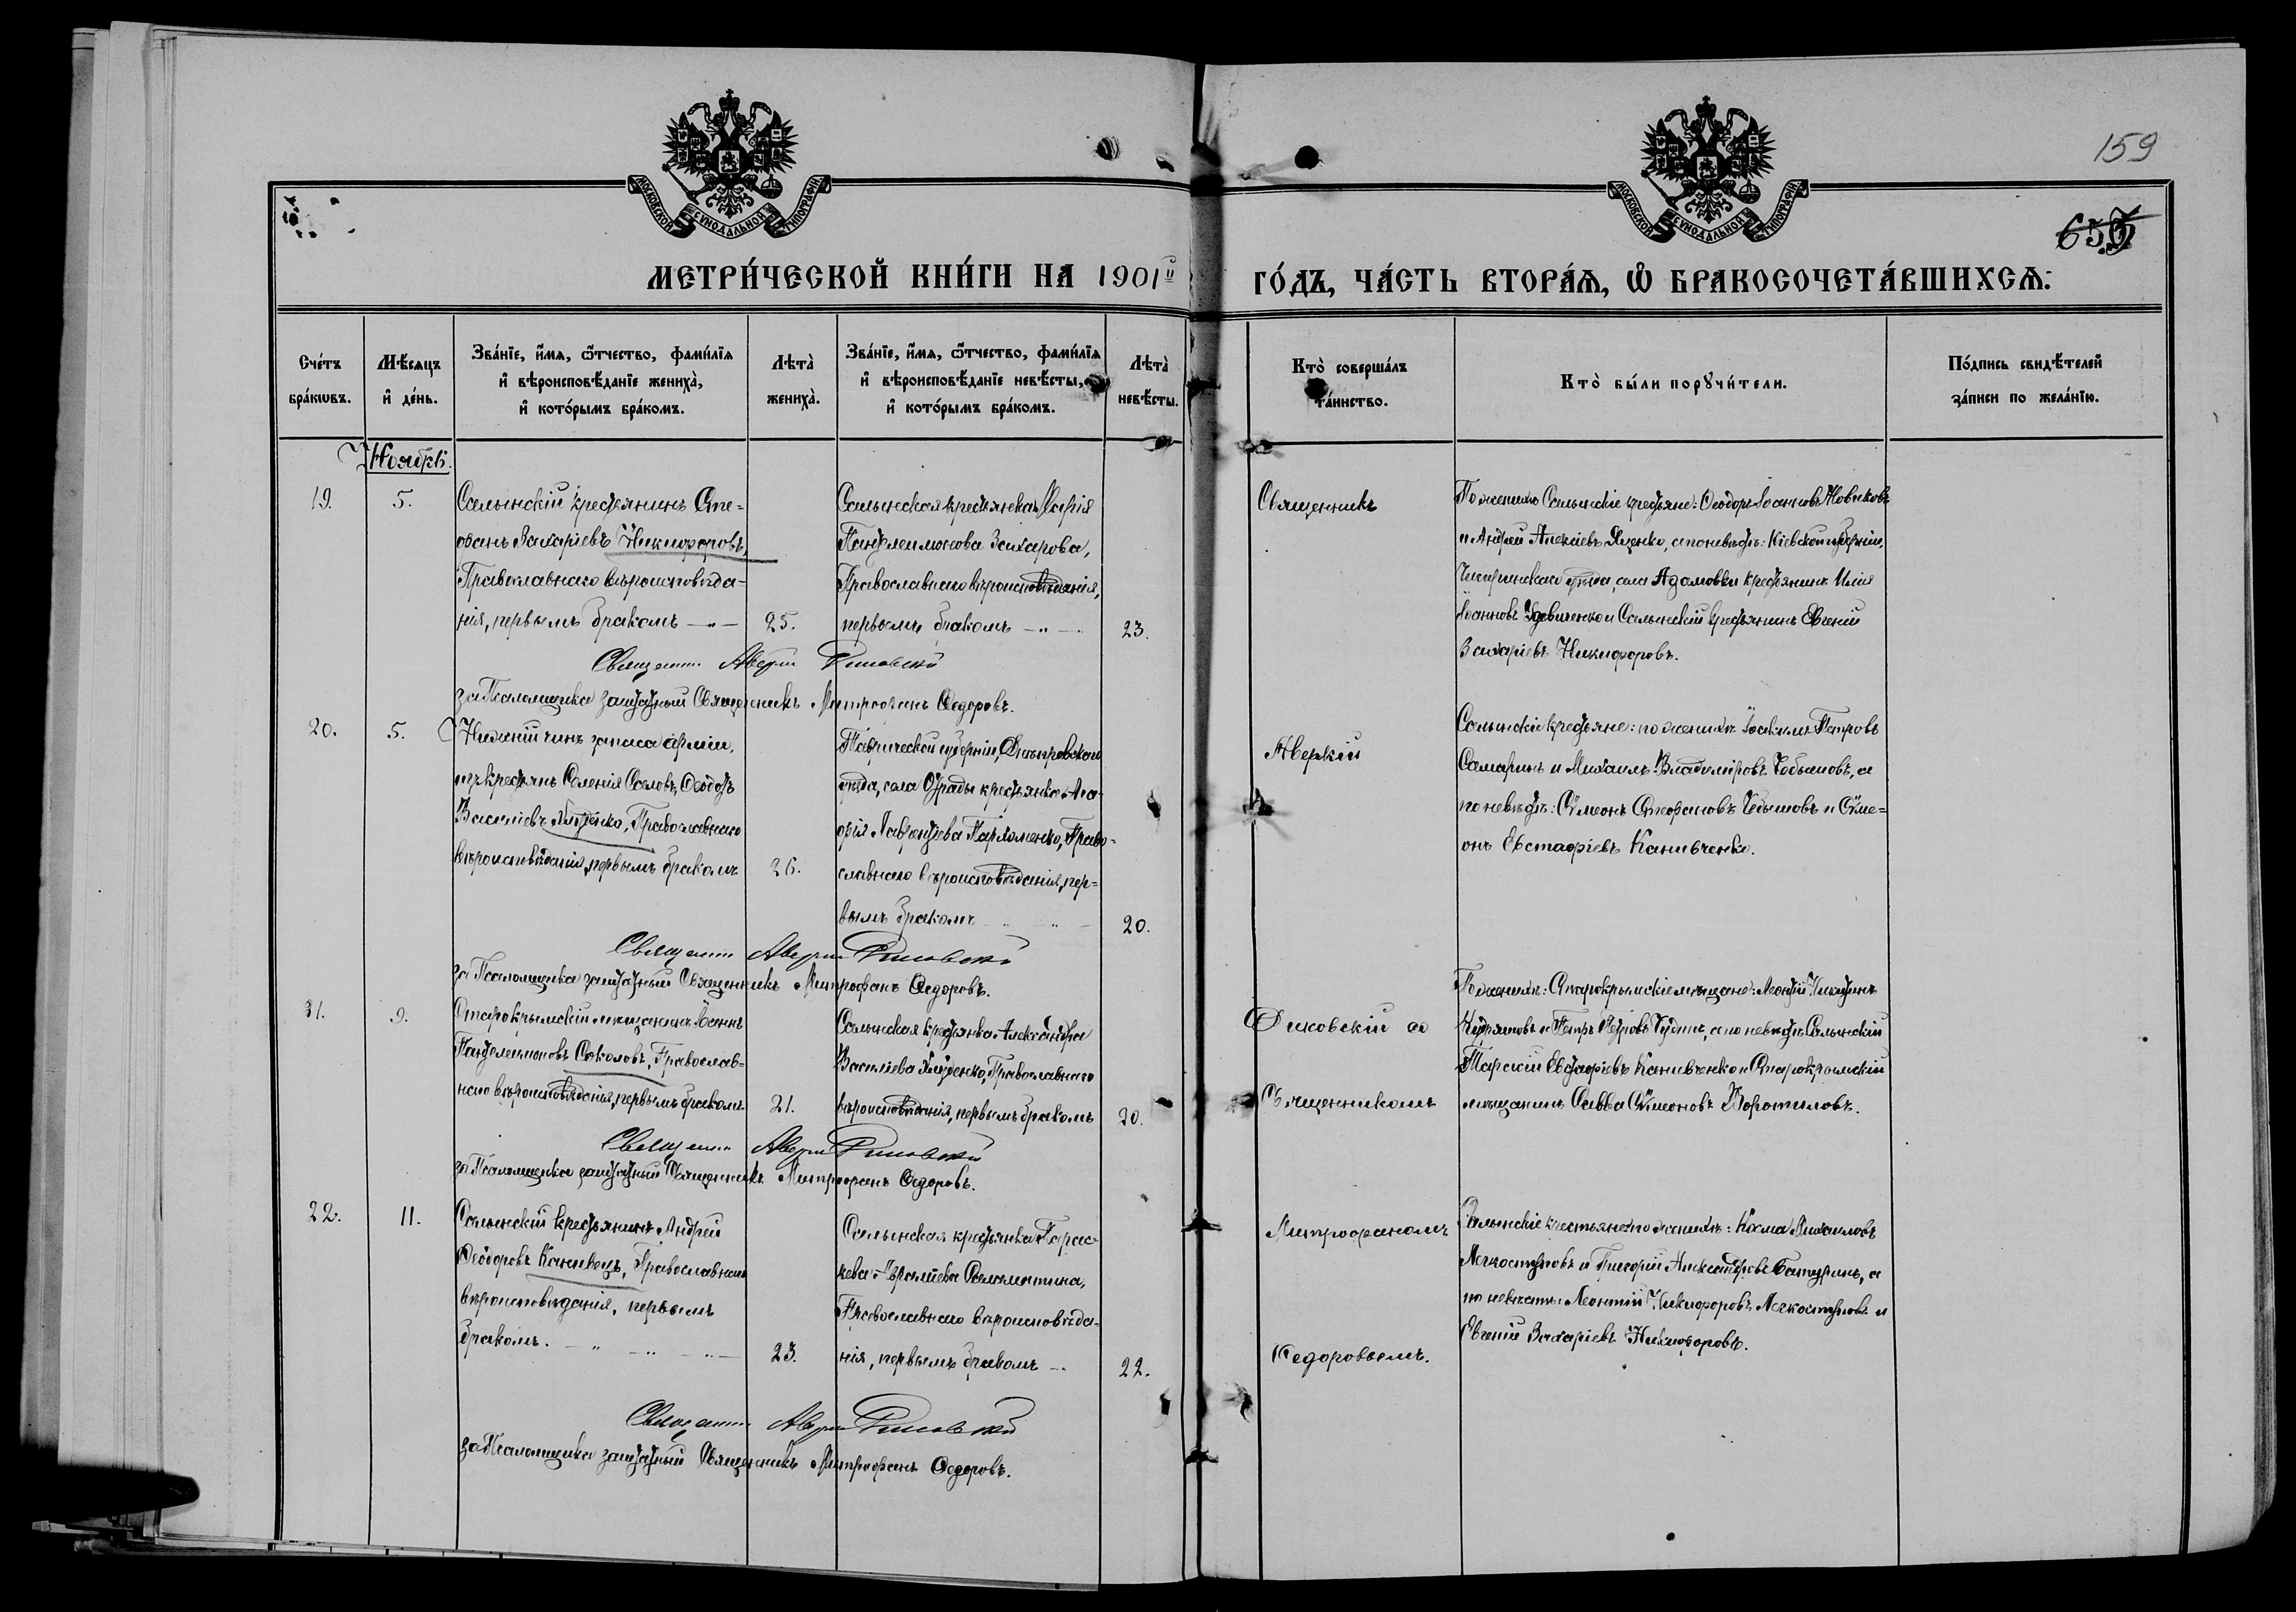 159
МОСКОВСКОЙ СѴНОДАЛЬНОЙ ТИПОГРАФІИ
МОСКОВСКОЙ СѴНОДАЛЬНОЙ ТИПОГРАФІИ
МЕТРИ́ЧЕСКОЙ КНИ́ГИ НА 1901й ГО́ДЪ, ЧА́СТЬ ВТОРА́Ѧ, Ѽ БРАКОСОЧЕТА́ВШИХСѦ:
Сче́тъ бра́кѡвъ.
Мѣ́сѧцъ и҆ де́нь.
Зва́нїе, и҆́мѧ, ѻ҆́тчество, фами́лїѧ
и҆ вѣроисповѣ́данїе жениха̀,
и҆ кото́рымъ бра́комъ.
Лѣта̀ жениха̀.
Зва́нїе, и҆́мѧ, ѻ҆́тчество, фами́лїѧ
и҆ вѣроисповѣ́данїе невѣ́сты,
и҆ кото́рымъ бра́комъ.
Лѣта̀ невѣ́сты.
Кто̀ соверша́лъ та́инство.
Кто̀ бы́ли порꙋчи́тели.
По́дпись свидѣ́телей
за́писи по жела́нїю.
Ноябрь.
19.
5.
Салынскій крестьянинъ Сте-
фанъ Захаріевъ Никифоровъ,
Православнаго вѣроисповѣда-
нія, первымъ бракомъ
25.
Салынская крестьянка Марія
Пантелеимонова Захарова,
Православнаго вѣроисповѣданія,
первымъ бракомъ
23.
Священникъ
По женихѣ Салынскіе крестьяне: Ѳеодоръ Іоанновъ Новиковъ
и Андрей Алексіевъ Яценко, а по невѣстѣ: Кіевской губерніи,
Чигиринскаго уѣзда, села Адамовки крестьянинъ Илія
Іоанновъ и Салынскій крестьянинъ Евгеній
Захаріевъ Никифоровъ.
Священникъ Аверкій
за Псаломщика заштатный Священникъ Митрофанъ Ѳедоровъ.
20.
5.
Нижній чинъ запаса арміи,
изъ крестьянъ Селенія Салы, Ѳеодотъ
Василіевъ Православнаго
вѣроисповѣданія, первымъ бракомъ
26.
Таврической губерніи, Днѣпровскаго
уѣзда, села Отрады крестьянка Ага-
фія Лаврентіева Пархоменко, Право-
славнаго вѣроисповѣданія, пер-
вымъ бракомъ
20.
Аверкій
Салынскіе крестьяне: по женихѣ Іоакимъ Петровъ
Самаринъ и Михаилъ Владиміровъ а
по невѣстѣ: Сѵмеонъ Стефановъ и Сѵме-
онъ Евстафіевъ Канивченко.
Священникъ Аверкій
за Псаломщика заштатный Священникъ Митрофанъ Ѳедоровъ.
21.
9.
Старокрымскій мѣщанинъ Іоаннъ
Пантелеимоновъ Соколовъ, Православ-
наго вѣроисповѣданія, первымъ бракомъ
21.
Салынская крестьянка Александра
Василіева Православнаго
вѣроисповѣданія, первымъ бракомъ
20.
со
Священникомъ
По женихѣ: Старокрымскіе мѣщане: Леонтій Никитинъ
Кудряшовъ и Петръ Петровъ а по невѣстѣ Салынскій
Евстафіевъ Канивченко и Старокрымскій
мѣщанинъ Савва Сѵмеоновъ Воротиловъ.
Священникъ Аверкій
за Псаломщика заштатный Священникъ Митрофанъ Ѳедоровъ.
22.
11.
Салынскій крестьянинъ Андрей
Ѳеодоровъ Каневецъ, Православнаго
вѣроисповѣданія, первымъ
бракомъ.
23.
Салынская крестьянка Парас-
кева
Православнаго вѣроисповѣда-
нія, первымъ бракомъ
22.
Митрофаномъ
Ѳедоровымъ.
Салынскіе крестьяне по женихѣ: Косма Михаиловъ
Легкоступовъ и Григорій Александровъ Батуринъ, а
по невѣстѣ: Леонтій Никифоровъ Легкоступовъ и
Евгеній Захаріевъ Никифоровъ.
Священникъ Аверкій
за Псаломщика заштатный Священникъ Митрофанъ Ѳедоровъ.